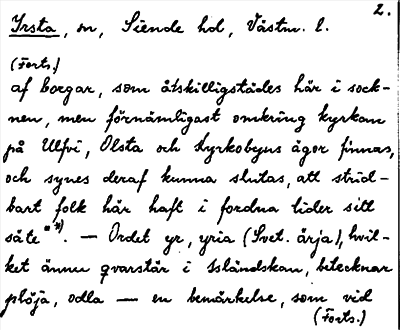 2.
Yrsta, sn, Siende hd, Västm. l.
(Forts.)
af borgar, som åtskilligstädes här i sock-
nen, men förnämligast omkring kyrkan
på Ulfvi, Olsta och Kyrkobyns ägor finnas,
och synes deraf kunna slutas, att strid-
bart folk här haft i fordna tider sitt
säte *). — Ordet yr, yria (Svet. ärja), hvil-
ket ännu qvarstår i Isländskan, betecknar
plöja, odla — en bemärkelse, som vid
(Forts.)